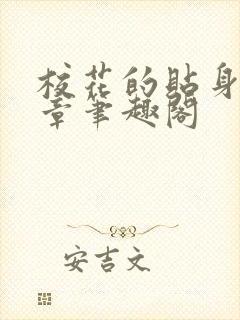 校花的贴身
章笔趣阁
安吉文